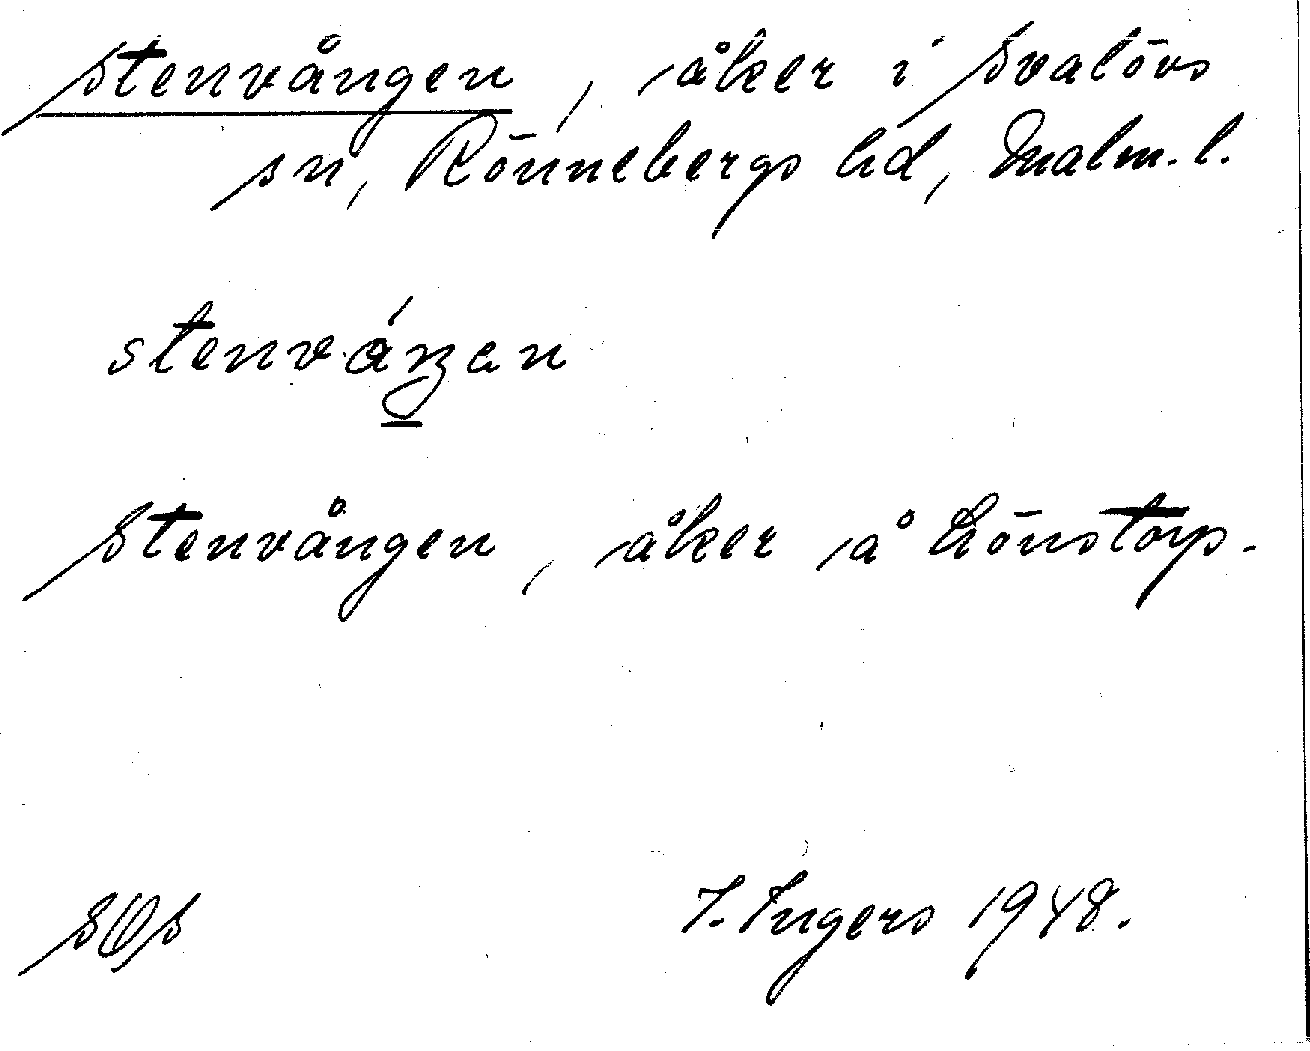 Stenvången, åker i Svalövs
sn, Rönnebergs hd, Malm. l.
stenváŋen
Stenvången, åker å Lönstorp.
I. Ingers 1948.